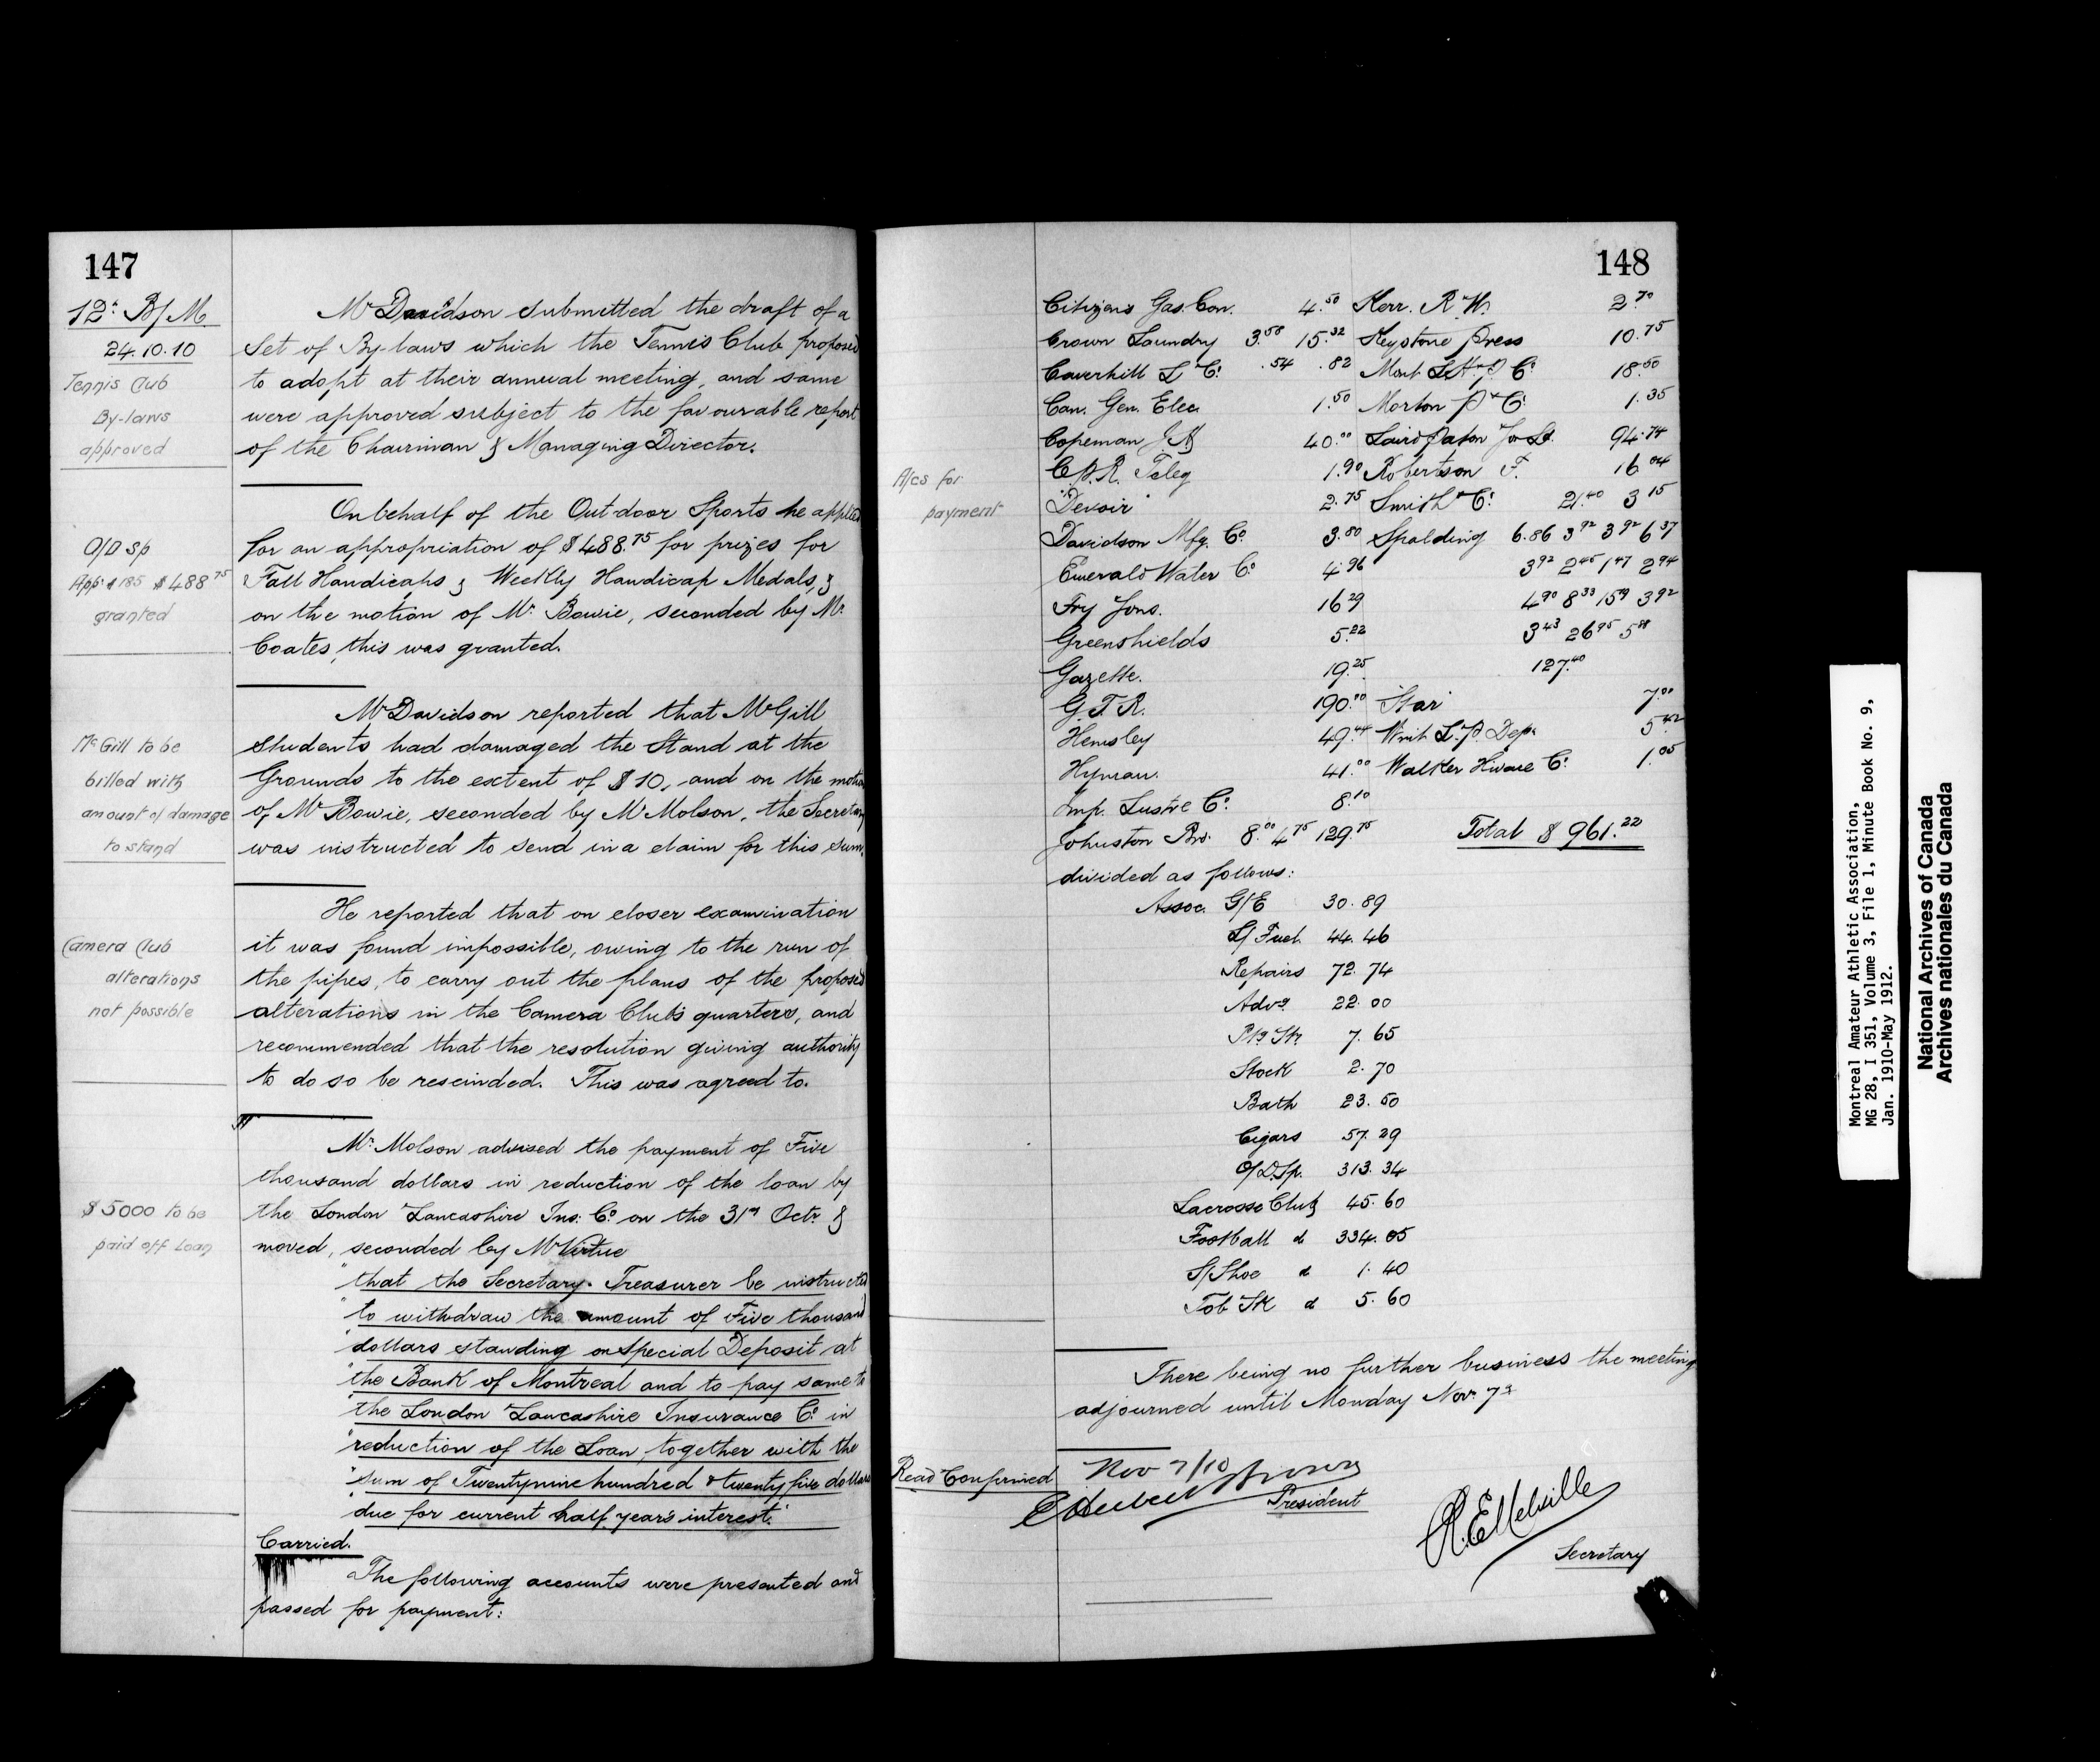 147
12th B/M.
24.10.10
Tennis Club
By-laws
approved
Mr Davidson submitted the draft of a
Set of By-laws which the Tennis Club proposed
to adopt at their annual meeting, and same
were approved subject to the favourable report
of the Chairman & Managing Director.
O/D Sp
App: $185 $488.75
granted
On behalf of the Out-door Sports he applied
for an appropriation of $488.75 for prizes for
Fall Handicaps & Weekly Handicap Medals, &
on the motion of Mr. Bowie, seconded by Mr.
Coates, this was granted.
McGill to be
billed with
amount of damage
to stand
Mr Davidson reported that McGill
students had damaged the Stand at the
Grounds to the extent of $10, and on the motion
of Mr Bowie, seconded by Mr Molson, the Secretary
was instructed to send in a claim for this sum.
Camera Club
alterations
not possible
He reported that on closer examination
it was found impossible, owing to the run of
the pipes, to carry out the plans of the proposed
alterations in the Camera Club's quarters, and
recommended that the resolution giving authority
to do so be rescinded. This was agreed to.
$5000 to be
paid off Loan
Mr. Molson advised the payment of Five
thousand dollars in reduction of the loan by
the London Lancashire Ins. Co on the 31st Octr. &
moved, seconded by Mr Virtue
"that the Secretary-Treasurer be instructed
"to withdraw the amount of Five thousand
"dollars standing on Special Deposit at
"the Bank of Montreal and to pay same to
"the London Lancashire Insurance Co in
"reduction of the Loan, together with the
"sum of Twentynine hundred & twenty five dollars
"due for current half year's interest."
Carried.
The following accounts were presented and
passed for payment:
148
A/cs for
payment
Citizens Gas. Con. 4.50 Kerr. R. W. 2.70
Crown Laundry 3.58 15.32 Keystone Press 10.75
Caverhill L Co. .54 .82 Mont L.H. & P. Co 18.50
Can. Gen. Elec. 1.50 Morton P & Co. 1.35
Copeman J A 40.00 Laird Paton Ld. 94.74
C.P.R. Teleg 1.90 Robertson F. 16.04
"Devoir" 2.75 Smith & Co. 21.40 3.15
Davidson Mfg. Co. 3.80 Spalding 6.86 3.92 3.92 6.37
Emerald Water Co. 4.96 3.92 2.45 1.47 2.94
Fry Jons. 16.29 4.90 8.33 15.19 3.92
Greenshields 5.22 3.43 26.95 5.88
Gazette. 19.25 127.40
G.T.R. 190.00 Star 7.00
Hemsley 49.44 L.P. Dep. 5.42
Hyman. 41.00 Walker Hware Co. 1.05
Imp. Lustre Co. 8.10
Johnston Bro. 8.00 4.75 129.75 Total $961.22
divided as follows:
Assoc. G/E 30.89
L/Fuel. 44.46
Repairs 72.74
Advg 22.00
Ptg Sty 7.65
Stock 2.70
Bath 23.50
Cigars 57.29
O/D.Sp. 313.34
Lacrosse Club 45.60
Football d 334.05
S/Shoe d 1.40
Tob. Sk d 5.60
There being no further business the meeting
adjourned until Monday Nov. 7th
Read Confirmed Nov 7/10
President
R. E. Melville
Secretary
Montreal Amateur Athletic Association,
MG 28, I 351, Volume 3, File 1, Minute Book No. 9,
Jan. 1910-May 1912.
National Archives of Canada
Archives nationales du Canada